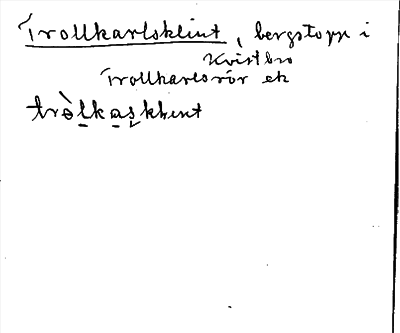 Trollkarlsklint, bergstopp i
Kvistbro
Trollkarlsrör ek